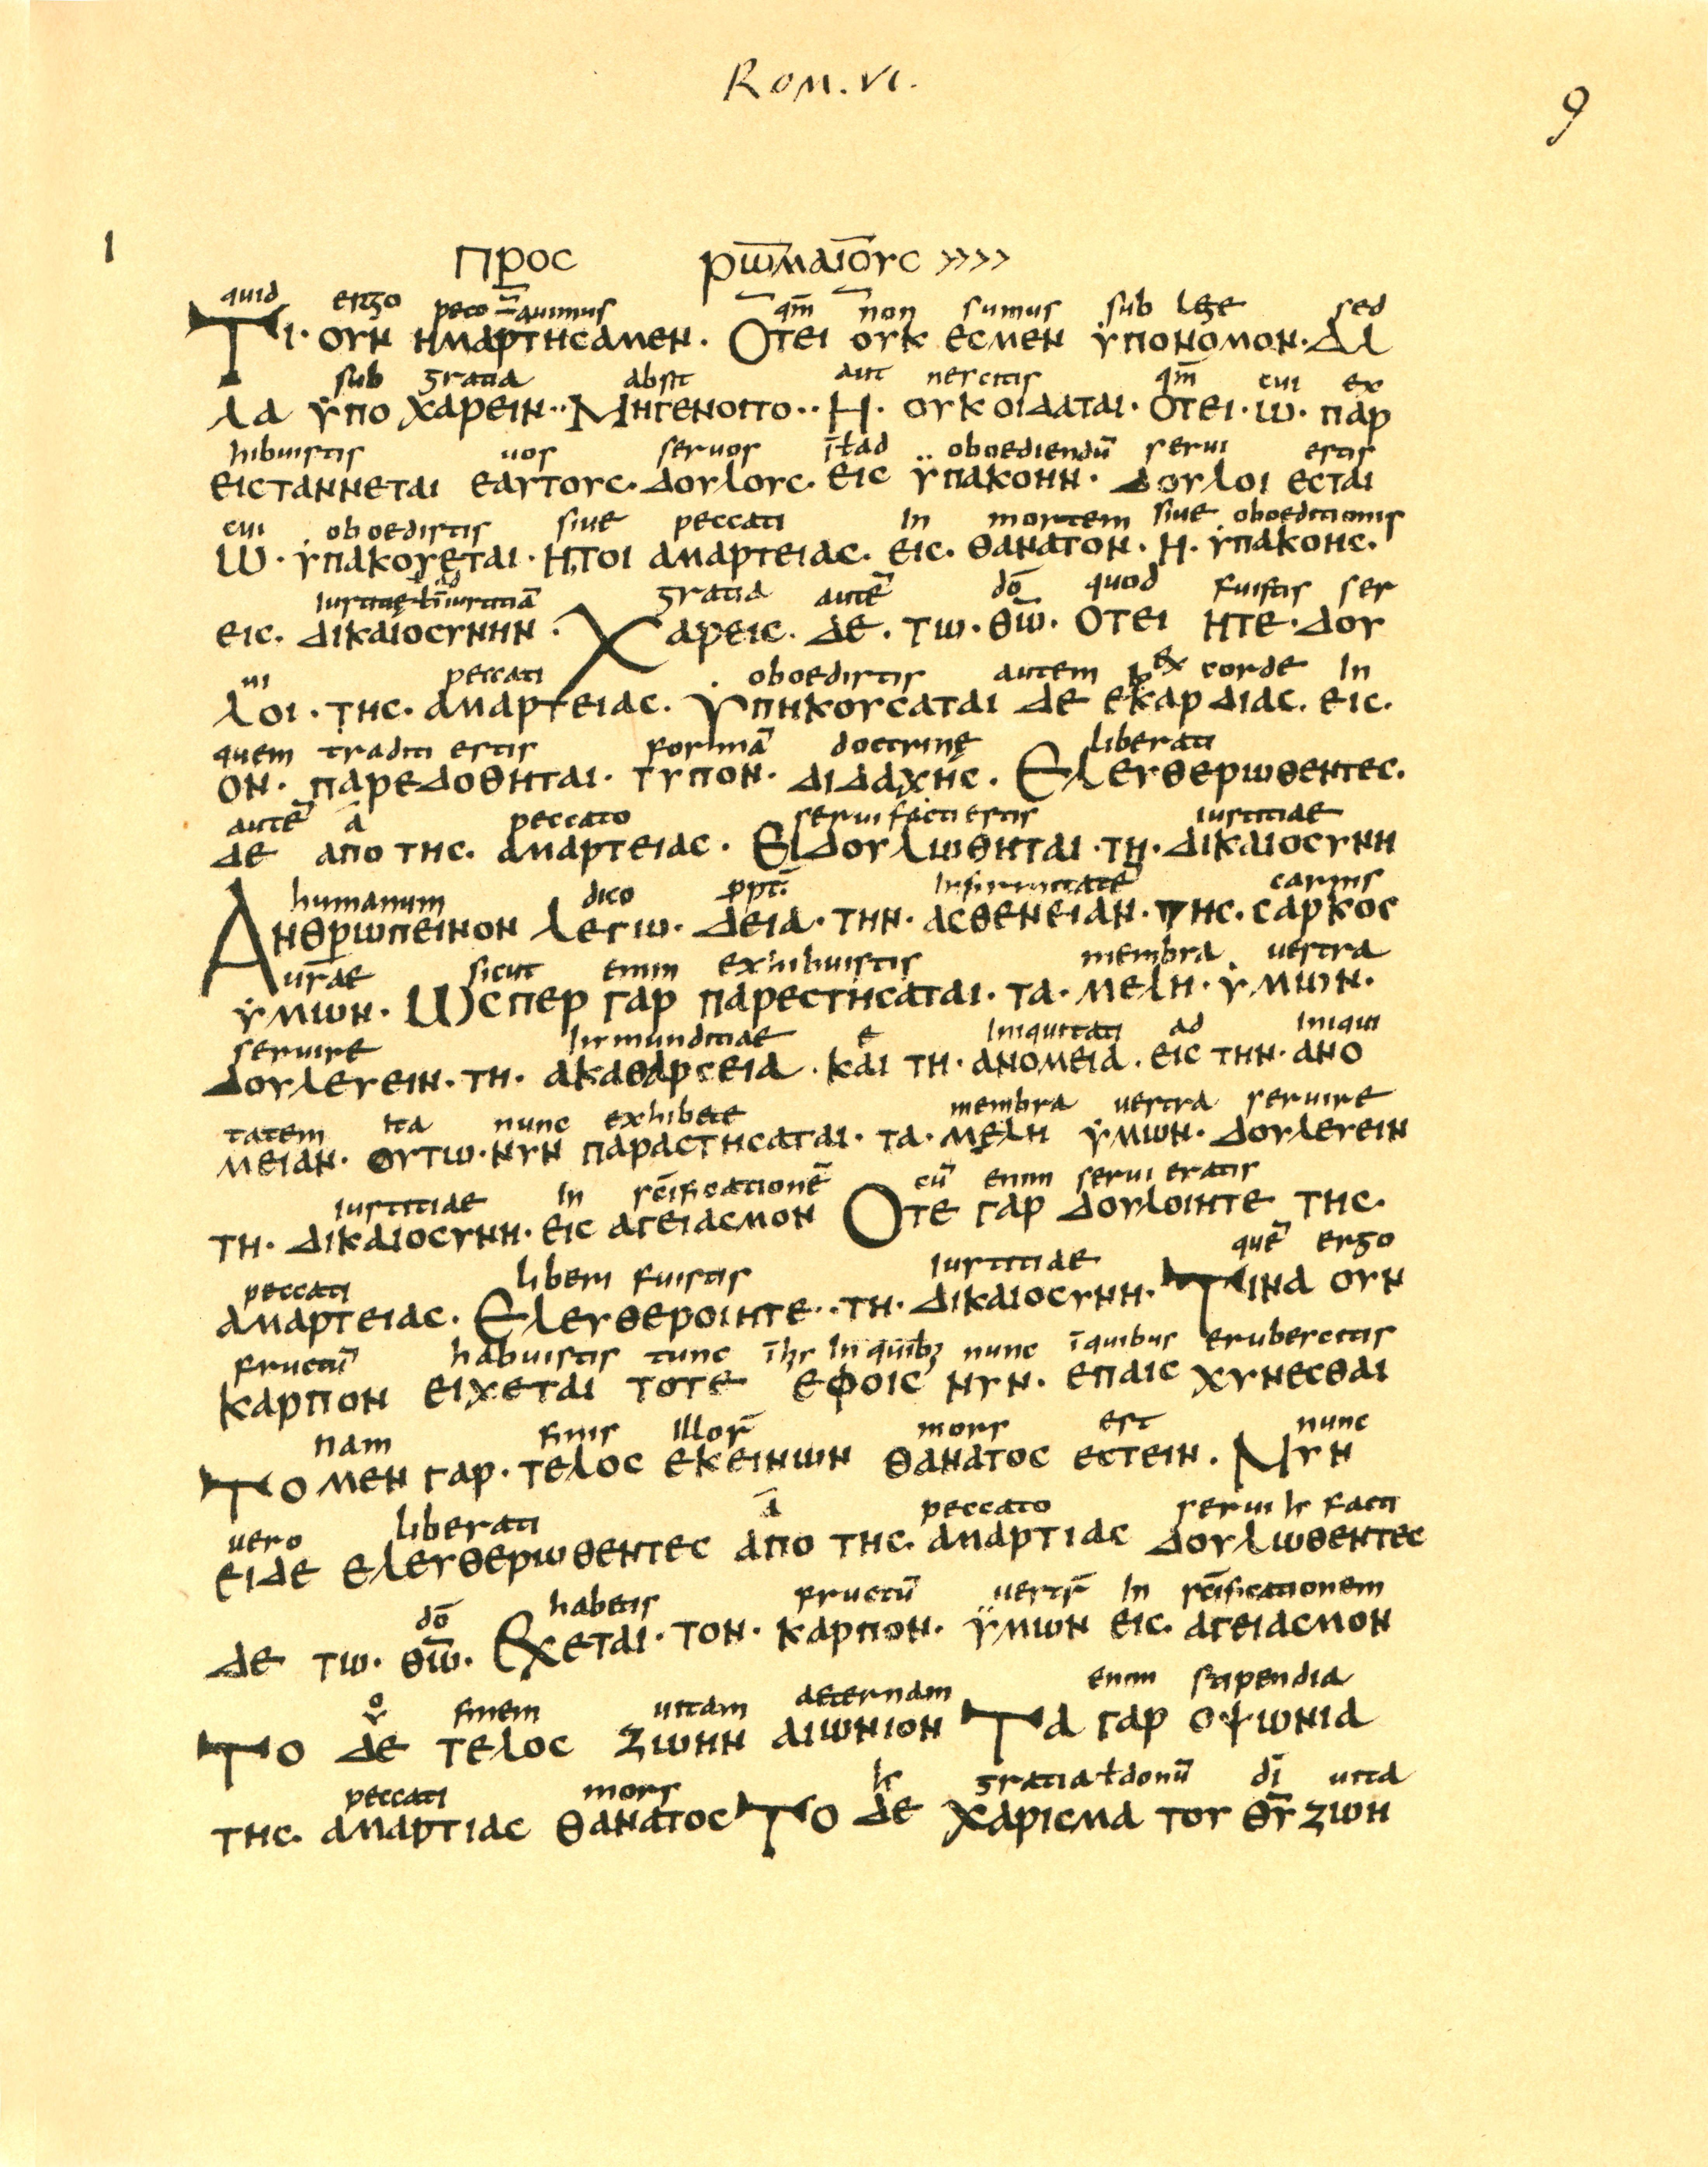 Rom. VI.
9
1
Προς ρω̅μαιο̅υς >>>>
quid ergo peccauimus qm̅ non sumus sub lege sed
Τι· ουν ημαρτησαμεν. Οτει ουκ εσμεν ϋπονομον· αλ
sub gratia absit aut nescitis qm̅ cui ex
λα ϋπο χαρειν·· Μηγενοιτο·· Η· ουκ οιδαται· οτει· ω· παρ
hibuistis uos seruos ł ad oboediendu̅ serui estis
εισταννεται εαυτους· δουλους· εις ϋπακοην· δουλοι εσται
cui oboedistis siue peccati In mortem siue oboeditionis
ω· ϋπακουεται· ητοι αμαρτειας. εις. θανατον. η. ϋπακοης.
gratia aute̅ do̅ quod fuistis ser
εις. δικαιοσυνην. Χαρεις. δε. τω. θω̅. οτει ητε· δου
ui peccati oboedistis autem ex corde In
λοι. της. αμαρτειας. Υπηκουσαται δε εκαρδιας. εις.
quem traditi estis forma̅ doctrine liberati
ον. παρεδοθηται. τυπον. διδαχης. Ελευθερωθεντες.
aute̅ a̅ peccato serui facti estis iustitiae
δε απο της. αμαρτειας. Εδουλωθηται· τη· δικαιοσυνη
humanum dico ppt̅ Infirmitate̅ carnis
Ανθρωπεινον λεγω. δεια· την· ασθενειαν· της. σαρκος
urae sicut enim exhibuistis membra uestra
ϋμων. Ωσπερ γαρ παρεστησαται. τα. μελη. ϋμων.
seruire Inmunditiae e Iniquitati ad Iniqui
δουλευειν. τη. ακαθαρσεια. και τη. ανομεια. εις την. ανο
tatem ita nunc exhibete membra uestra seruire
μειαν. ουτω. νυν παραστησαται. τα. μελη ϋμων. δουλευειν
iustitiae In sc̅ificatione̅ cu̅ enim serui eratis
τη. δικαιοσυνη. εις αγειασμον Οτε γαρ δουλοιητε της.
peccati liberi fuistis iustitiae que̅ ergo
αμαρτειας. Ελευθεροιητε·· τη. δικαιοσυνη. Τινα ουν
fructu̅ habuistis tunc In quib; nunc i̅ quibus erubescitis
καρπον ειχεται τοτε εφοις νυν. επαις χυνεσθαι
nam finis illor̅ mors est nunc
Το μεν γαρ. τελος εκεινων θανατος εστειν. Νυν
uero liberati a̅ peccato serui facti
ειδε ελευθερωθεντες απο της. αμαρτιας δουλωθεντες
do̅ habetis fructu̅ uestr̅ In sc̅ificationem
δε τω. θω̅. Εχεται. τον. καρπον. ϋμων εις. αγειασμον
finem uitam aeternam enim stipendia
Το δε τελος ζωην αιωνιον Τα γαρ οψωνια
peccati mors gratia ł donu̅ di̅ uita
της. αμαρτιας θανατος Το δε χαρισμα του θυ̅ ζωη